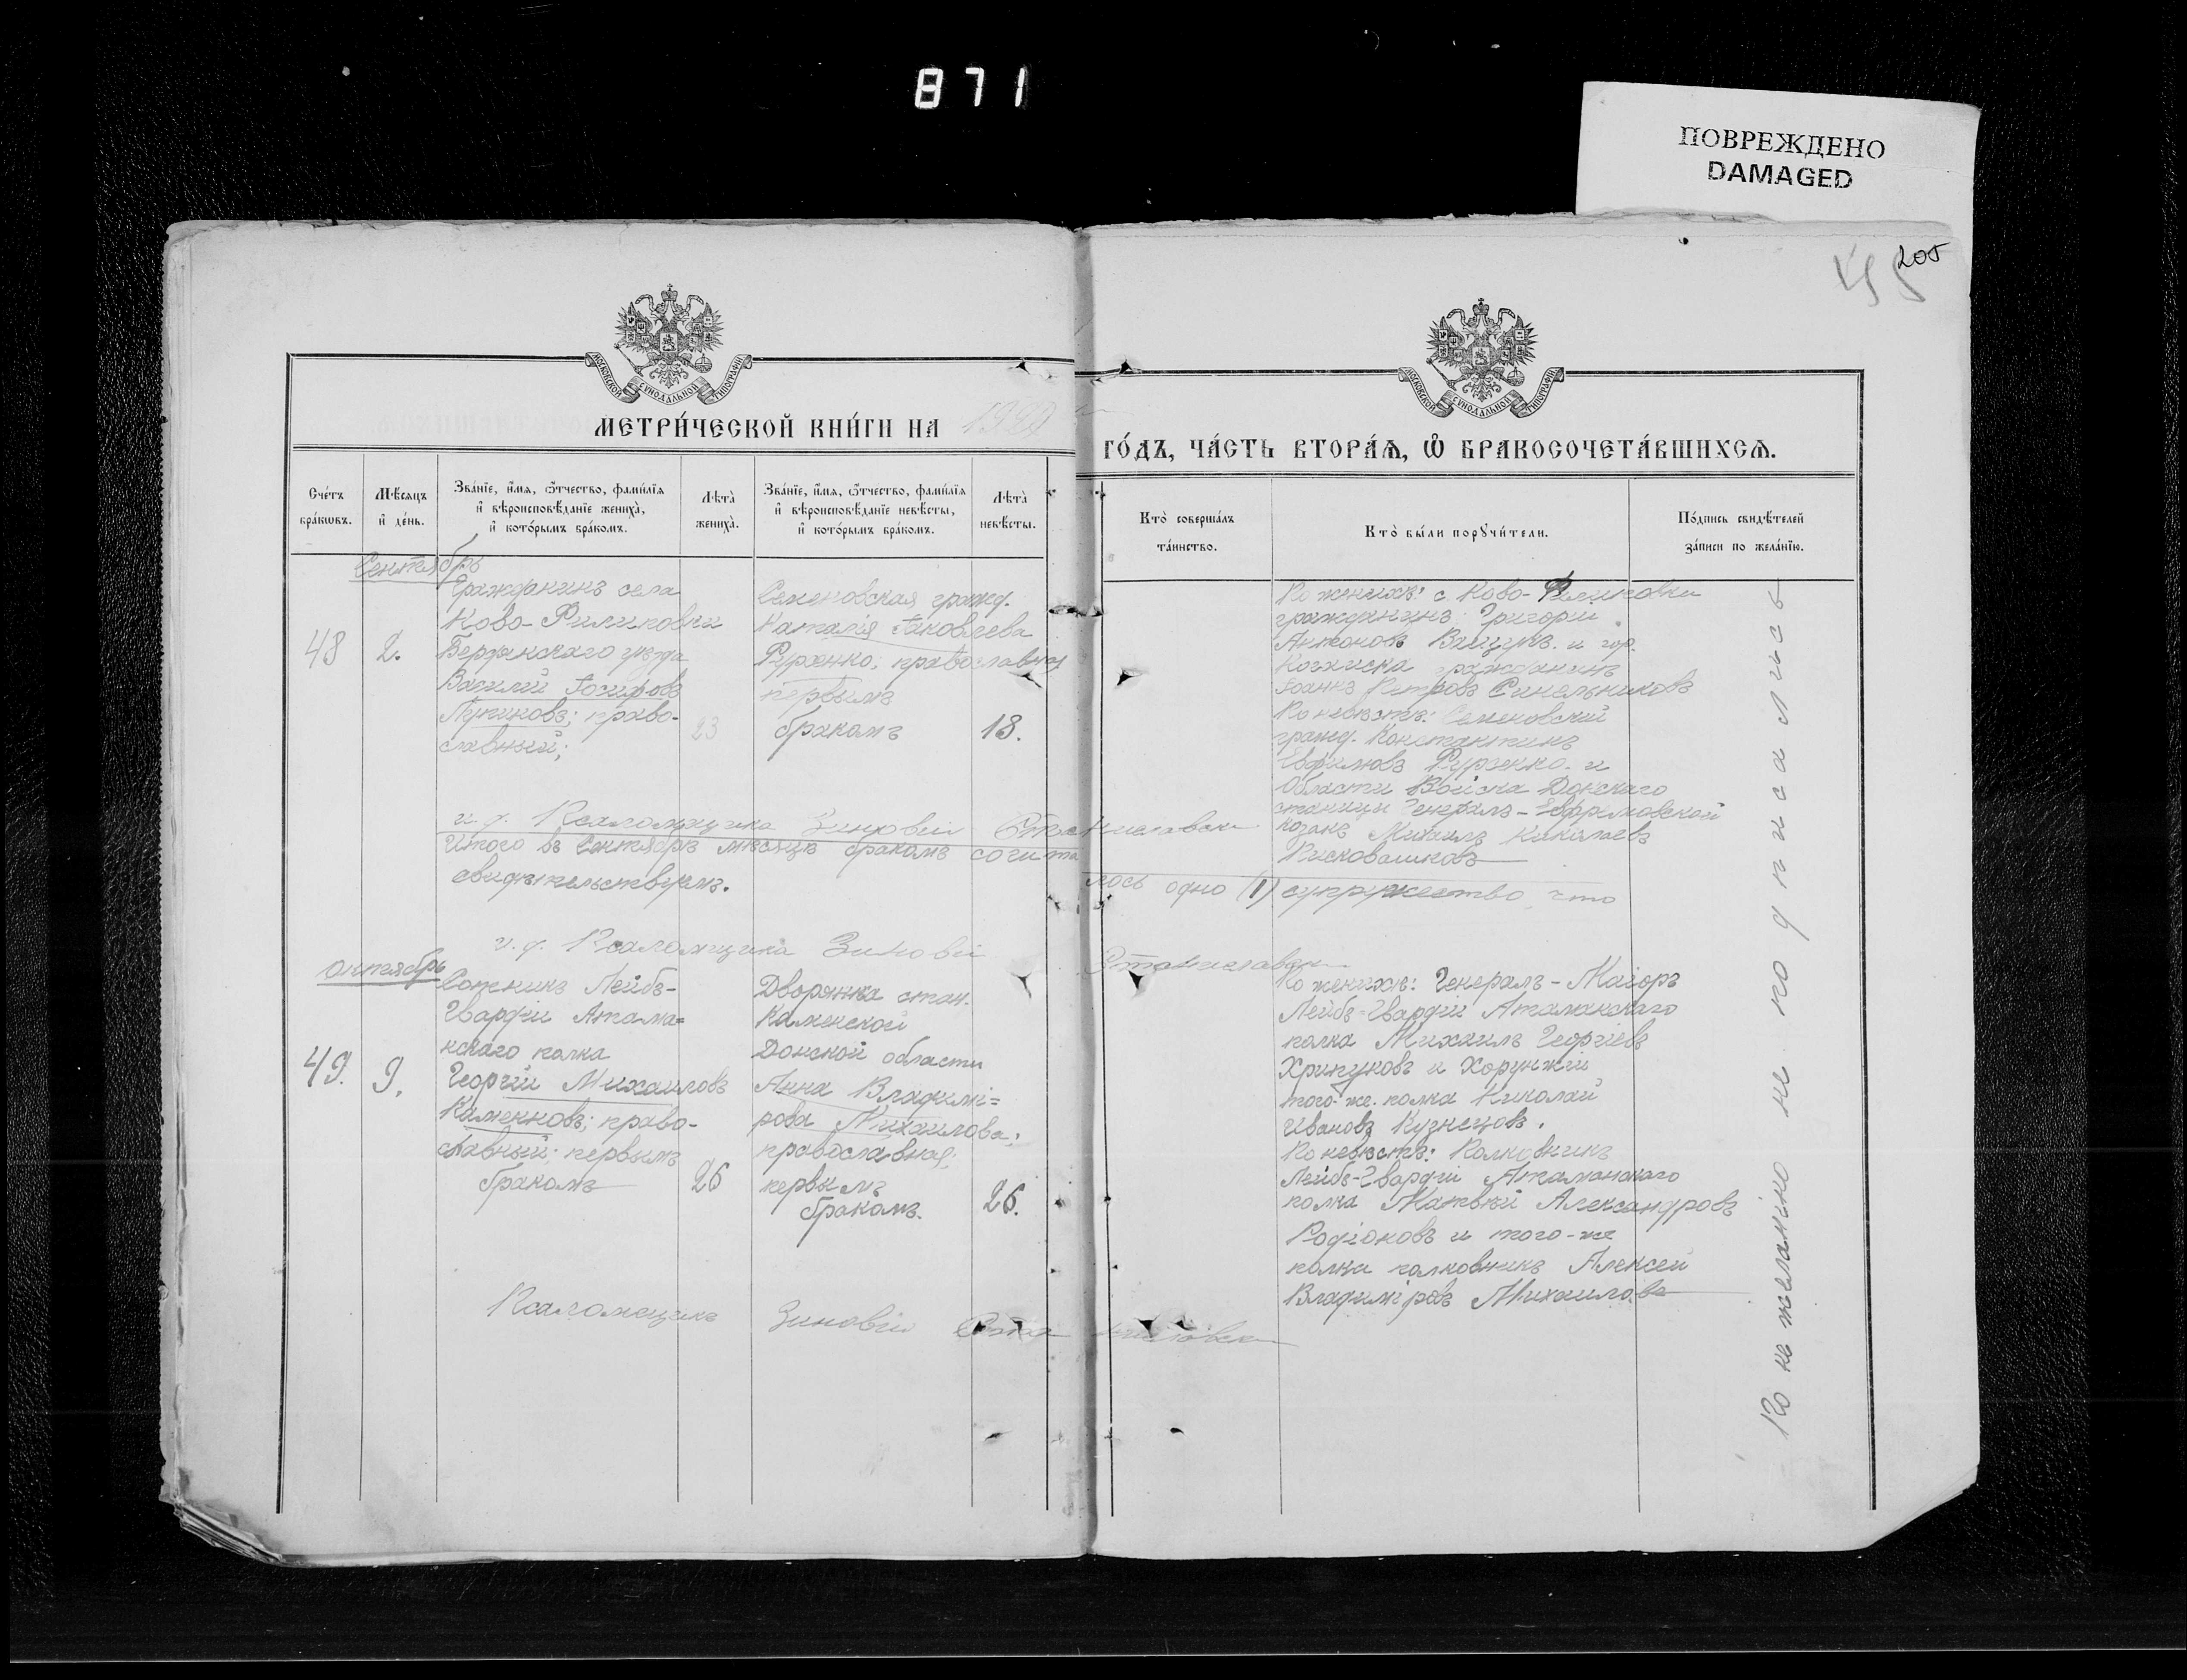 871
ПОВРЕЖДЕНО
DAMAGED
205
МОСКОВСКОЙ СѴНОДАЛЬНОЙ ТИПОГРАФІИ
МОСКОВСКОЙ СѴНОДАЛЬНОЙ ТИПОГРАФІИ
МЕТРИ́ЧЕСКОЙ КНИ́ГИ НА
ГО́ДЪ, ЧА́СТЬ ВТОРА́Ѧ, Ѽ БРАКОСОЧЕТА́ВШИХСѦ.
Сче́тъ
бра́кѡвъ.
Мѣ́сѧцъ
и҆ де́нь.
Зва́нїе, и҆́мѧ, ѻ҆́тчество, фами́лїѧ
и҆ вѣроисповѣ́данїе жениха̀,
и҆ кото́рымъ бра́комъ.
Лѣта̀
жениха̀.
Зва́нїе, и҆́мѧ, ѻ҆́тчество, фами́лїѧ
и҆ вѣроисповѣ́данїе невѣ́сты,
и҆ кото́рымъ бра́комъ.
Лѣта̀
невѣ́сты.
Кто̀ соверша́лъ
та́инство.
Кто̀ бы́ли порꙋчи́тели.
По́дпись свидѣ́телей
за́писи по жела́нїю.
Сентябрь
48
2.
Гражданинъ села
Ново-Филиповки
Бердянскаго уѣзда
Василій Іосифовъ
Лупиковъ; право-
славный;
23
Семеновская гражд.
Наталія Іаковлева
Руженко; православная
первымъ
бракомъ
18.
По женихѣ: с Ново-Филиповки
гражданинъ Григорій
Антоновъ и гор.
гражданинъ
Іоаннъ Петровъ Синельниковъ
По невѣстѣ: Семеновскій
гражд. Константинъ
Евфимовъ Руженко и
Области Войска Донскаго
станицы Генералъ-Ефремовской
козакъ Михаилъ Николаевъ
и. д. Псаломщика Зиновій Станиславскі
Итого въ Сентябрѣ мѣсяцѣ бракомъ сочета
лось одно (1) супружество, что
свидѣтельствуемъ.
и. д. Псаломщика Зиновій Станиславскі
октябрь
49.
9.
Сотникъ Лейбъ-
Гвардіи Атама=
нскаго полка
Георгій Михаиловъ
Каменновъ; право-
славный; первымъ
бракомъ
26
Дворянка стан.
Каменской
Донской области
Анна Владимі=
рова Михаилова;
православная;
первымъ
бракомъ.
26.
По женихѣ: Генералъ-Маіоръ
Лейбъ-Гвардіи Атаманскаго
полка Михаилъ Георгіевъ
Хрипуновъ и Хорунжій
того-же полка Николай
Ивановъ Кузнецовъ.
По невѣстѣ: Полковникъ
Лейбъ-Гвардіи Атаманскаго
полка Матвѣй Александровъ
Родіоновъ и того-же
полка полковникъ Алексей
Владиміровъ Михаиловъ
Псаломщикъ Зиновій Станиславскі
По нежеланію не подписались